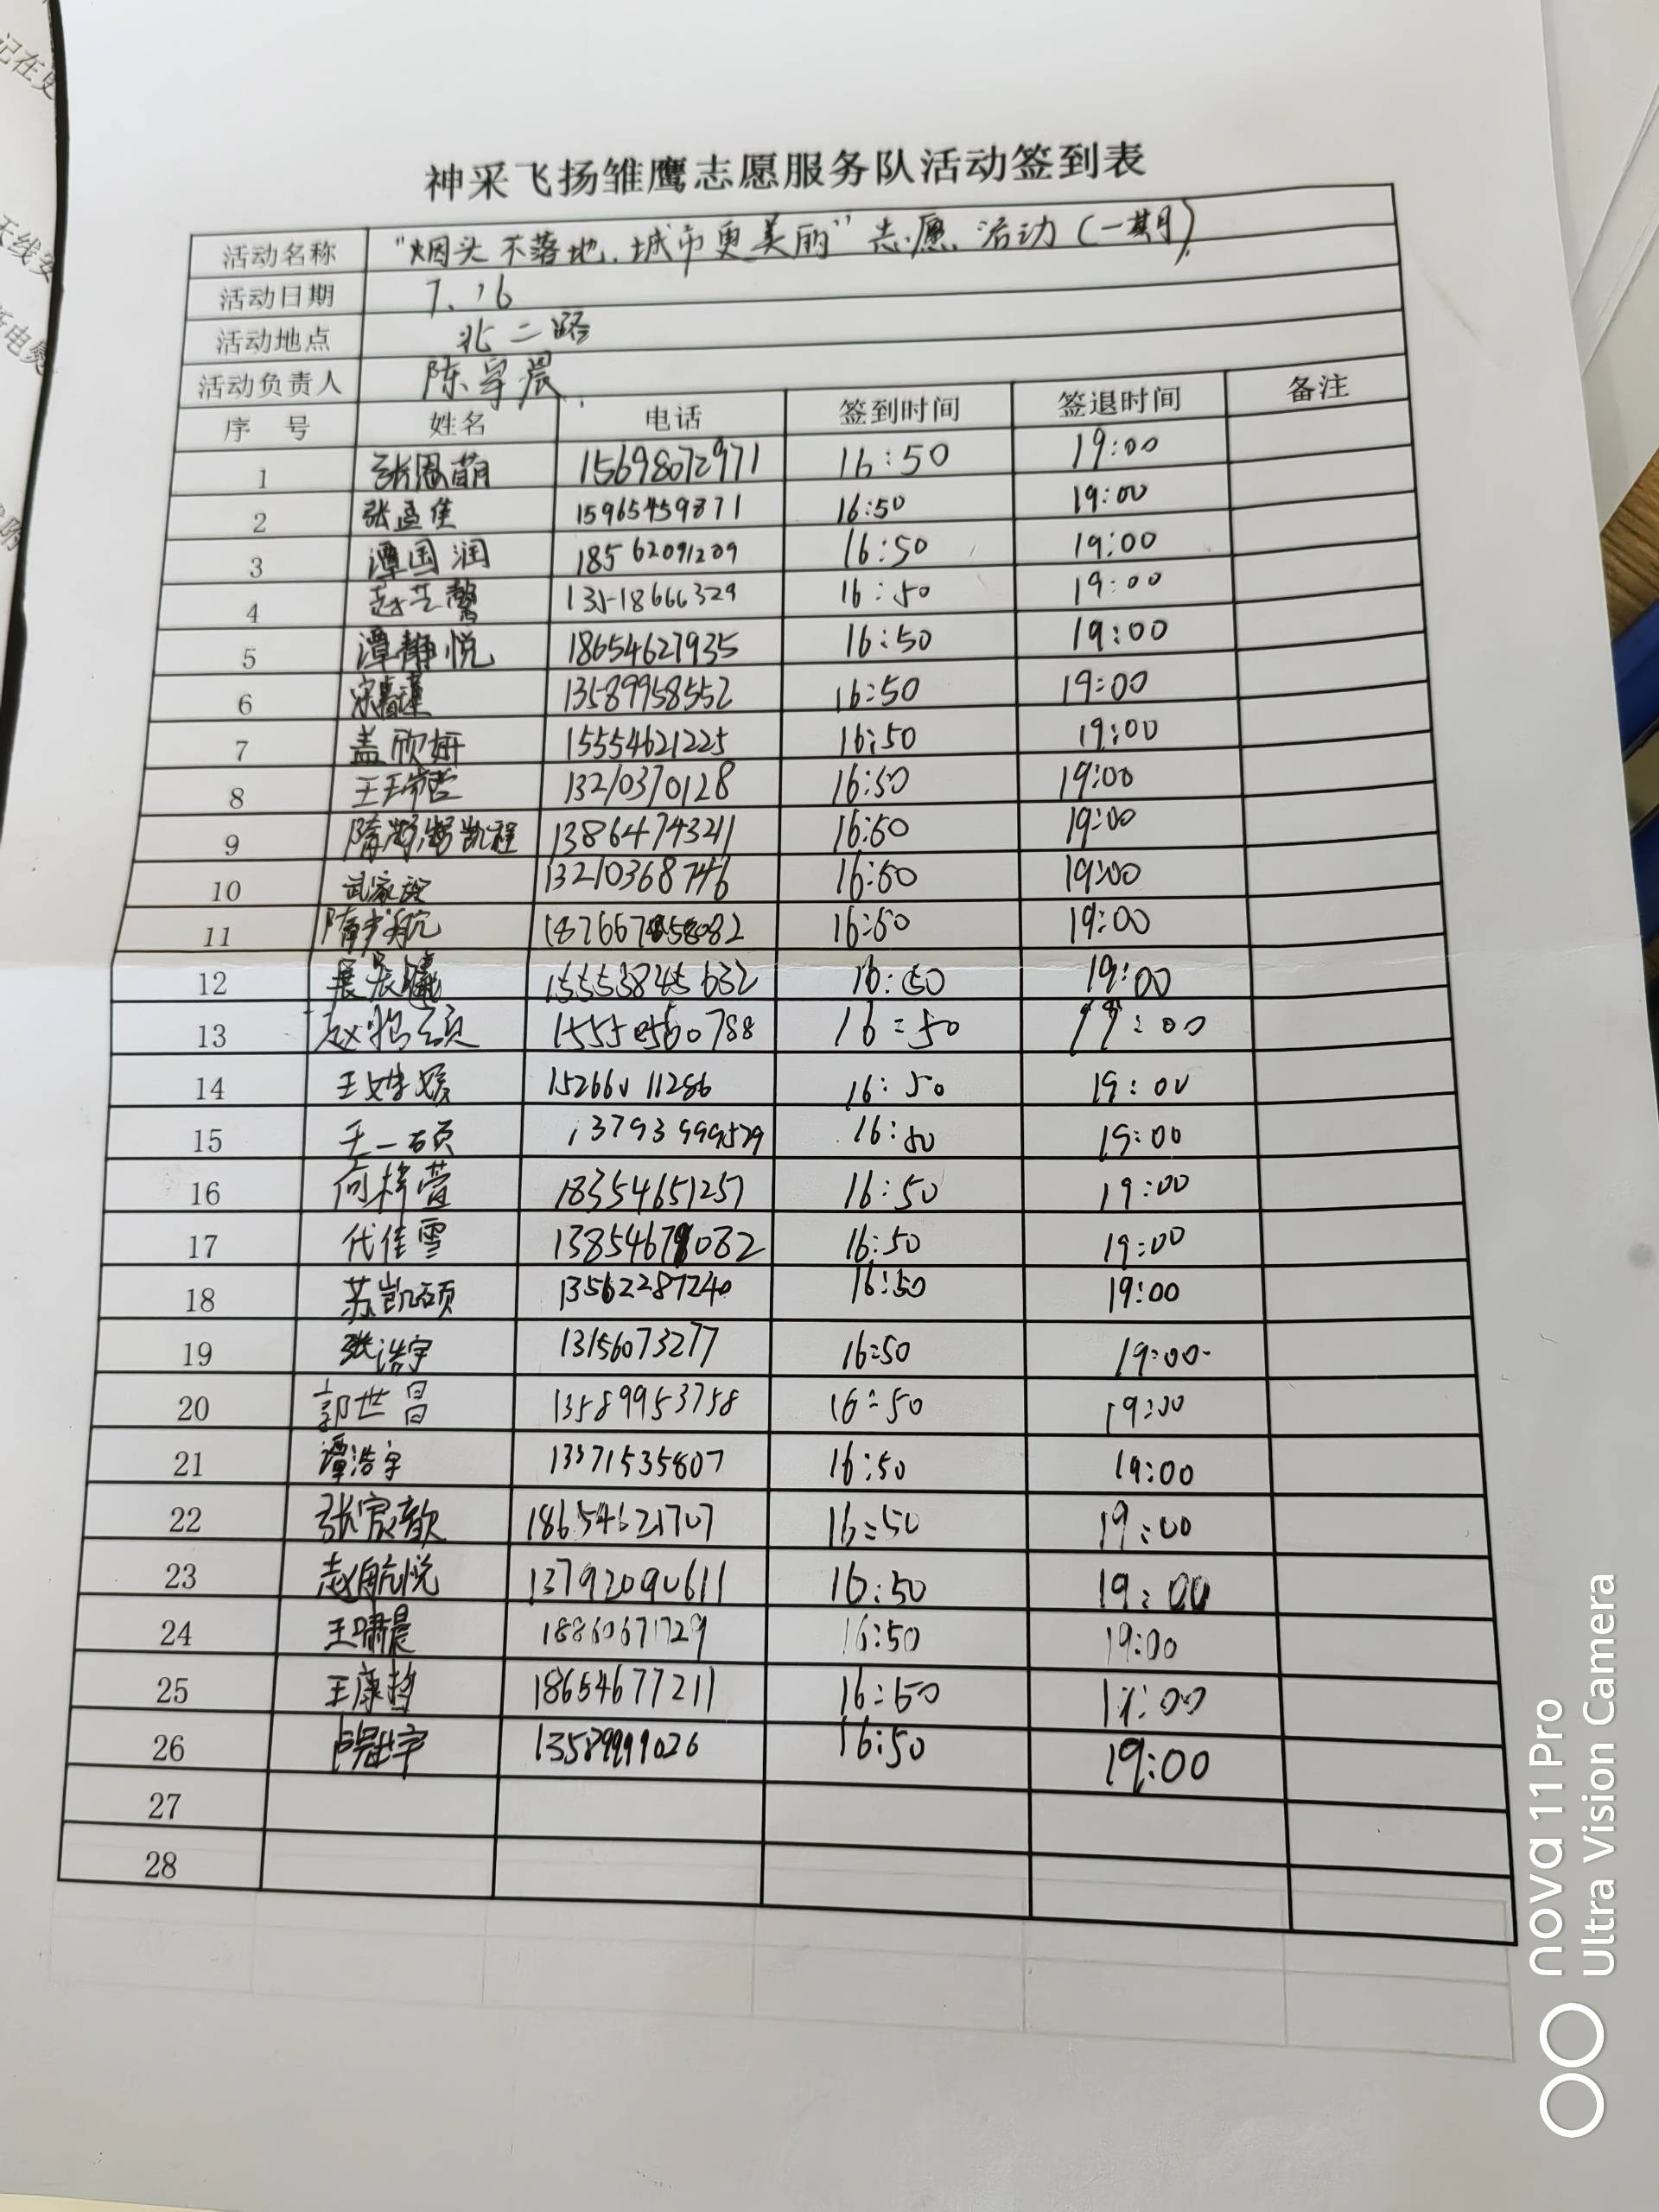 神采飞扬雏鹰志愿服务队活动签到表
活动名称 "烟头不落地,城市更美丽"志愿活动(一期)
活动日期 7.16
活动地点 北二路
活动负责人 陈宇晨
序 号 姓名 电话 签到时间 签退时间 备注
1 张恩萌 15698072971 16:50 19:00
2 张孟佳 15965459871 16:50 19:00
3 谭国润 18562091209 16:50 19:00
4 赵芒馨 13518666329 16:50 19:00
5 谭静悦 18654627935 16:50 19:00
6 13589958552 16:50 19:00
7 盖欣妍 15554621225 16:50 19:00
8 王瑞哲 13210370128 16:50 19:00
9 凯程 13864743211 16:50 19:00
10 武家 13210368746 16:50 19:00
11 16:50 19:00
12 展辰曦 15553845632 16:50 19:00
13 15550560788 16:50 19:00
14 王婕媛 15266011286 16:50 19:00
15 王一硕 16:50 19:00
16 何梓萱 18354651257 16:50 19:00
17 代佳雪 16:50 19:00
18 苏凯硕 13562287240 16:50 19:00
19 张浩宇 13156073277 16:50 19:00
20 郭世昌 13589953758 16:50 19:00
21 谭浩宇 13371535807 16:50 19:00
22 张家歆 18654621707 16:50 19:00
23 赵航悦 13792090611 16:50 19:00
24 王啸晨 18860671729 16:50 19:00
25 王康 18654677211 16:50 19:00
26 13589991026 16:50 19:00
27
28
nova 11 Pro
Ultra Vision Camera